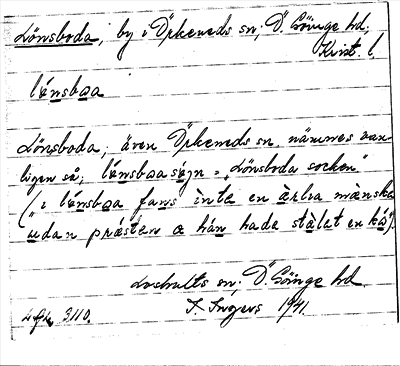 Lönsboda, by i Örkeneds sn; Ö. Göinge hd,
Krist. l.
lónsboa
Lönsboda, även Örkeneds sn nämnes van-
ligen så; lónsboasógn = „Lönsboda socken"
(„i lónsboa fans inte en ärlia mänska
udan prästen a hán hade stàlet en kó").
Loshults sn; Ö. Göinge hd.
I. Ingers 1941.